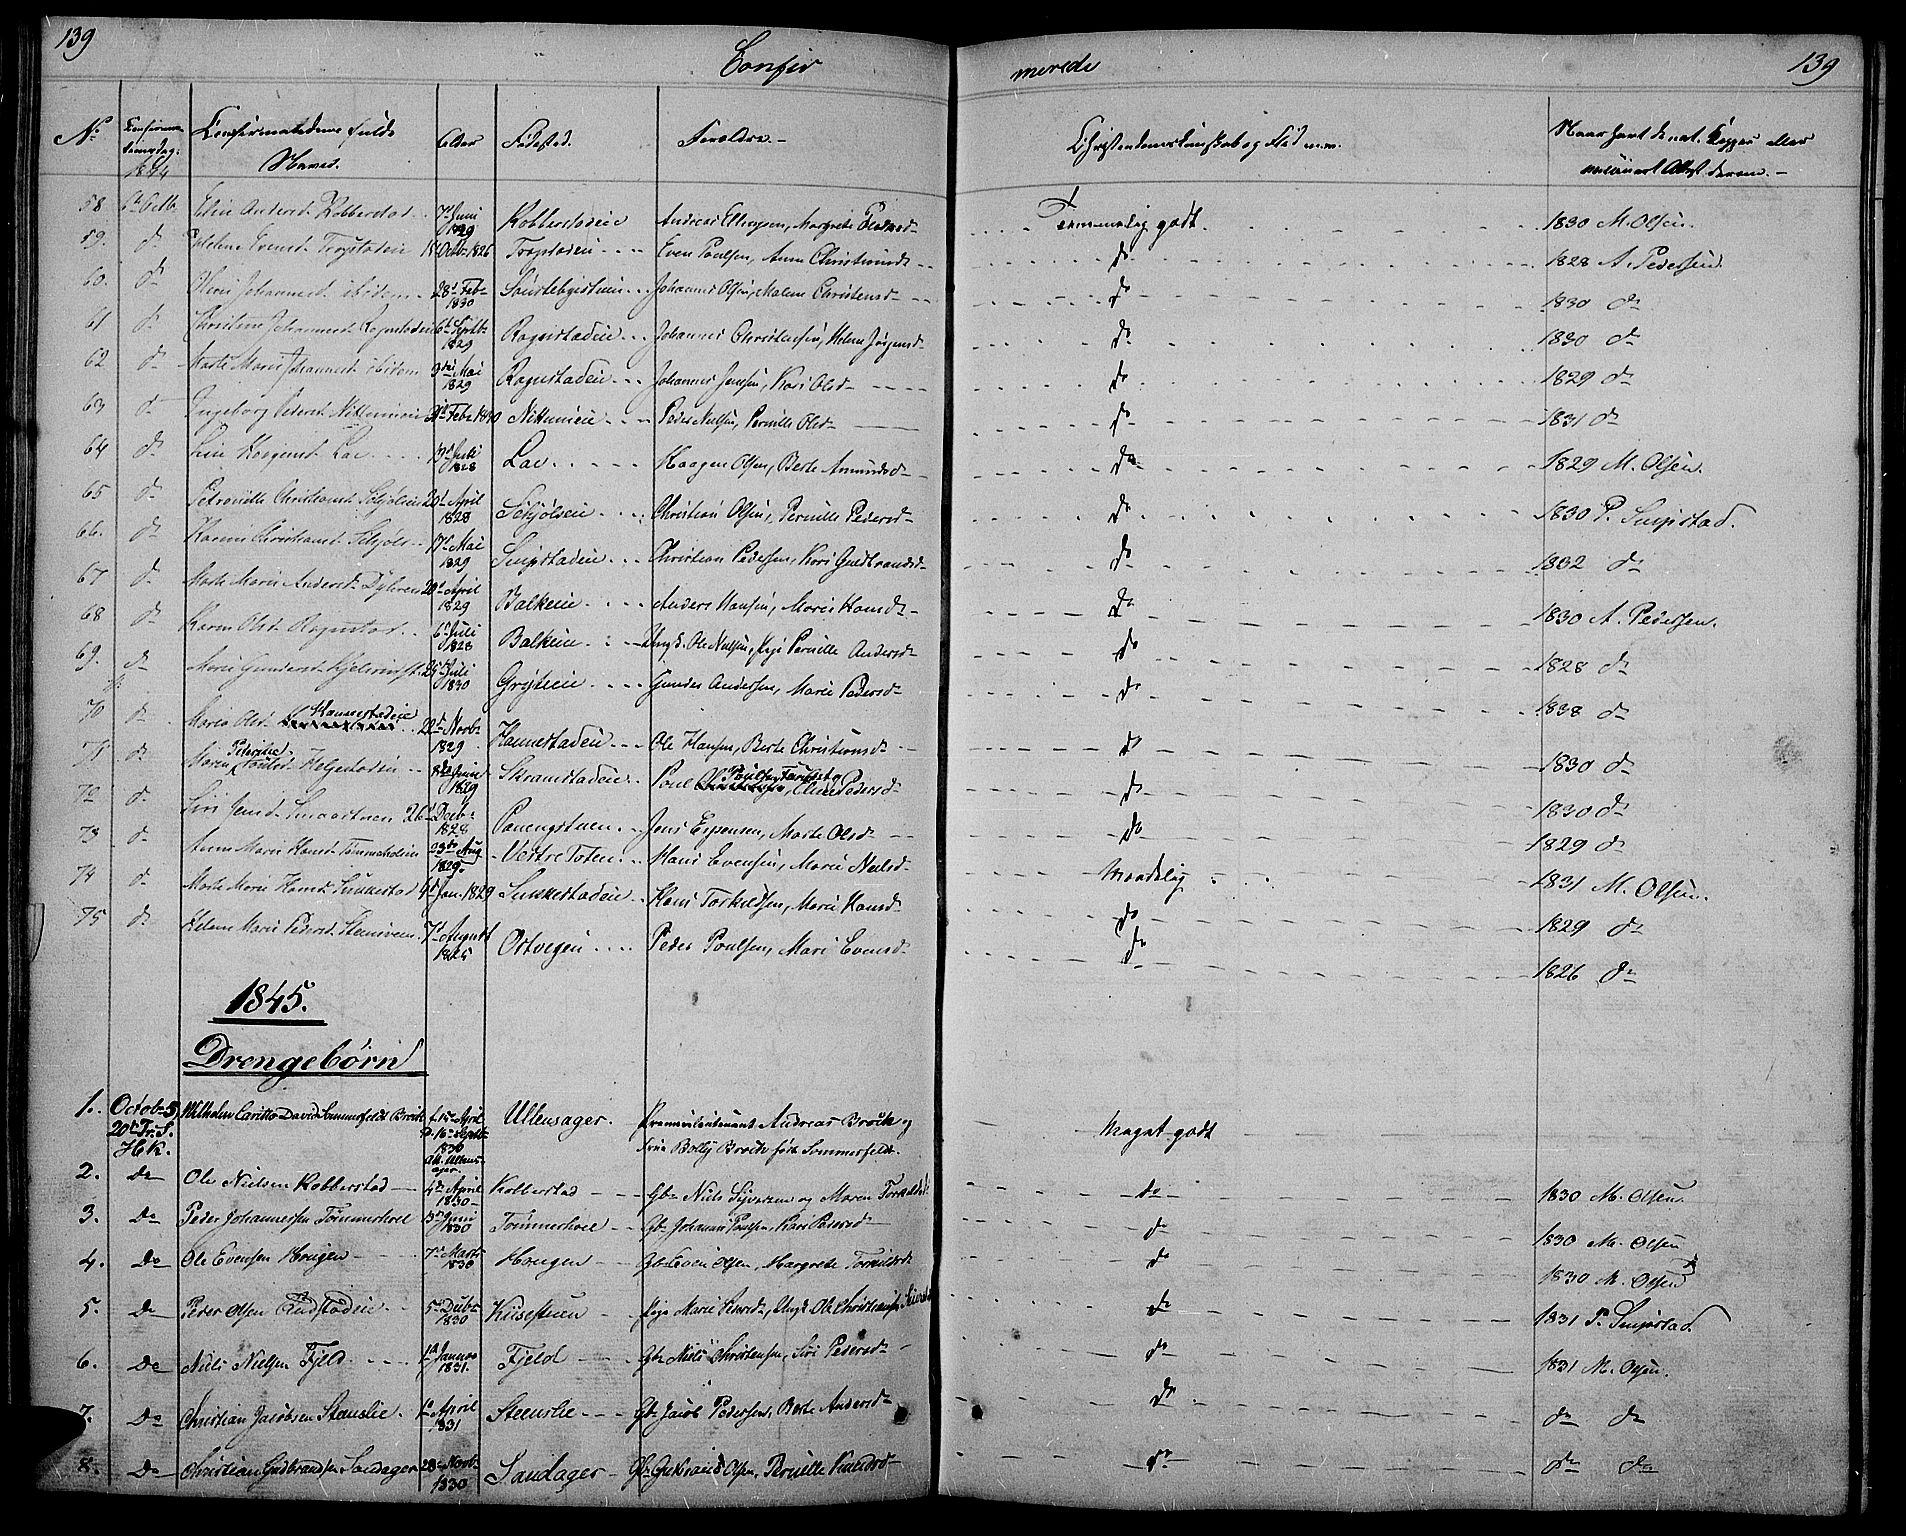 139 Confir merede 139
No Confirma- Confirmandernes fulde Alder Fødested. Forældre.- Christendomskundskab og Flid m.m. Naar havt de nat. Kopper eller
tionsdag: Navne. vaccineret Attest derom.-
1844
58. 6te Octb. Eline Andersd. Kobberstad.. 7de Juni 1829 Kobberstadeie Andreas Ellingsen, Margrete Pedersd. Temmelig godt. 1830 M. Olsen.
59. do Evensd. Tropstadeie 18 Octbr 1826 Tropstadeie Even Poulsen, Anne Christiansd. do 1828 A. Pedersen.
60. do Johannesd. ibidem 28d Feb 1830 Johannes Olsen, Malene Christensd. do 1830 do
61 do Christine Johannesd. Rognstadeie 6te Septbr 1829 Rognstadeie Johannes Christensen, Helene Jørgensd. do 1830 do
62 do Marte Marie Johannesd. ibidem 3die Mai 1829 Rognstadeie Johannes Jensen, Kari Olsd. do 1829 do
63 do Ingeborg Pedersd. Nittumeie Feb. Nittumeie Peder Nielsen, Pernille Olsd. do 1831 do
64 do Haagensd. Lae 13d Juli 1828 Lae Haagen Olsen, Berte Amundsd. do 1829 M. Olsen.
65 do Petronille Christiansd. Schjølseie 20d April 1828 Schjølseie Christian Olsen, Pernille Pedersd. do 1830 P. Smestad.
66. do Karen Christiansd. Schjøls 17d Mai 1829 Smestadeie Christian Pedersen, Kari Guldbrandsd. do 1832 do
67 do Marte Marie Andersd. 20d April 1829 Balkeeie Anders Hansen, Marie Hansd. do 1830 A. Pedersen.
68 do Karen Olsd. Rognstad.. 6te Juli 1828 Balkeeie Ungk. Ole Nielsen, Pige Pernille Andersd. do 1828 do
69. do Marie Gundersd. 25d Juli 1830 Gryteeie Gunder Andersen, Marie Pedersd. do 1838 do
70 do Maria Olsd. Hannestadeie 22d Novb. 1829 Hannestadeie Ole Hansen, Berte Christiansd. do 1830 do
71 do Maren Petrine Poulsd. Helgestadeie Juni 1829 Skramstadeie Poul Poulsen, Pedersd. do 1830 do
72 do Siri Jensd. 26d Decb. 1828 Jens Espensen, Marte Olsd. do 1829 do
73 do Anne Marie Hansd. Tømmerholeie 23de Aug 1829. Vestre Toten Hans Evensen, Marie Nielsd. Maadelig 1831 M. Olsen.
74 do Marte Marie Hansd. 4d Jan. 1829 Hans Torkildsen, Marie Hansd. do 1829 do
75 do Helene Marie Pedersd. Steensveen 7d August 1825 Ostvegen Peder Poulsen, Mari Evensd. do 1826 do
1845.
Drengebørn
1. Octob. 5 Wilhelm David Sommerfeldt Broch f. 15de April Ullensager. Premierlieutenant Andreas Broch og Meget godt
20de Tr. S. 1830 Frue Bolly Broch født Sommerfeldt.
H.K.
2. Do Ole Nielsen Kobberstad 4de April 1830 Kobberstad Gb. Niels Syversen og Maren Torkildsd. do 1830 M. Olsen.
3. Do Peder Johannessen Tømmerhoel 13d Juni 1830 Tømmerhoel Gb. Johannes Poulsen, Kari Pedersd. do 1830 M. Olsen
4. Do Ole Evensen Hougen 7d Marts 1830 Hougen Gb. Even Olsen, Margrete Torkildsd. do 1830 M. Olsen
5. Do Peder Olsen Rudstadeie 5d Decbr 1830 Kiisestuen Pige Marie Iversd., Ungk. Ole Christiansen do 1831 P. Smestad.
6. Do Niels Nielsen Fjeld 1d Januar 1831. Fjeld Gb. Niels Christensen, Siri Pedersd. do 1831 M. Olsen.
7. Do Christian Jacobsen Steenslie. 1d April 1831 Steenslie Gb. Jacob Pedersen, Berte Andersd. do do do
8. Do Christian Gudbrandsen Sandager 28d Novb. 1830 Sandager Gb. Gulbrand Olsen, Pernille Knudsd. do do do